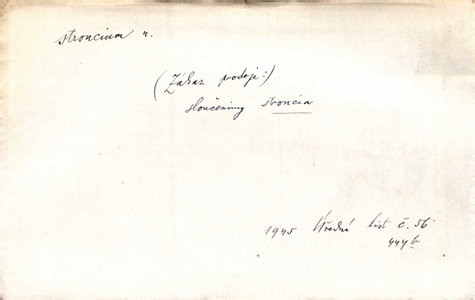 stroncium n.
(Zákaz prodeje:)
sloučeniny stroncia
1945 Úřední list č. 56
444b